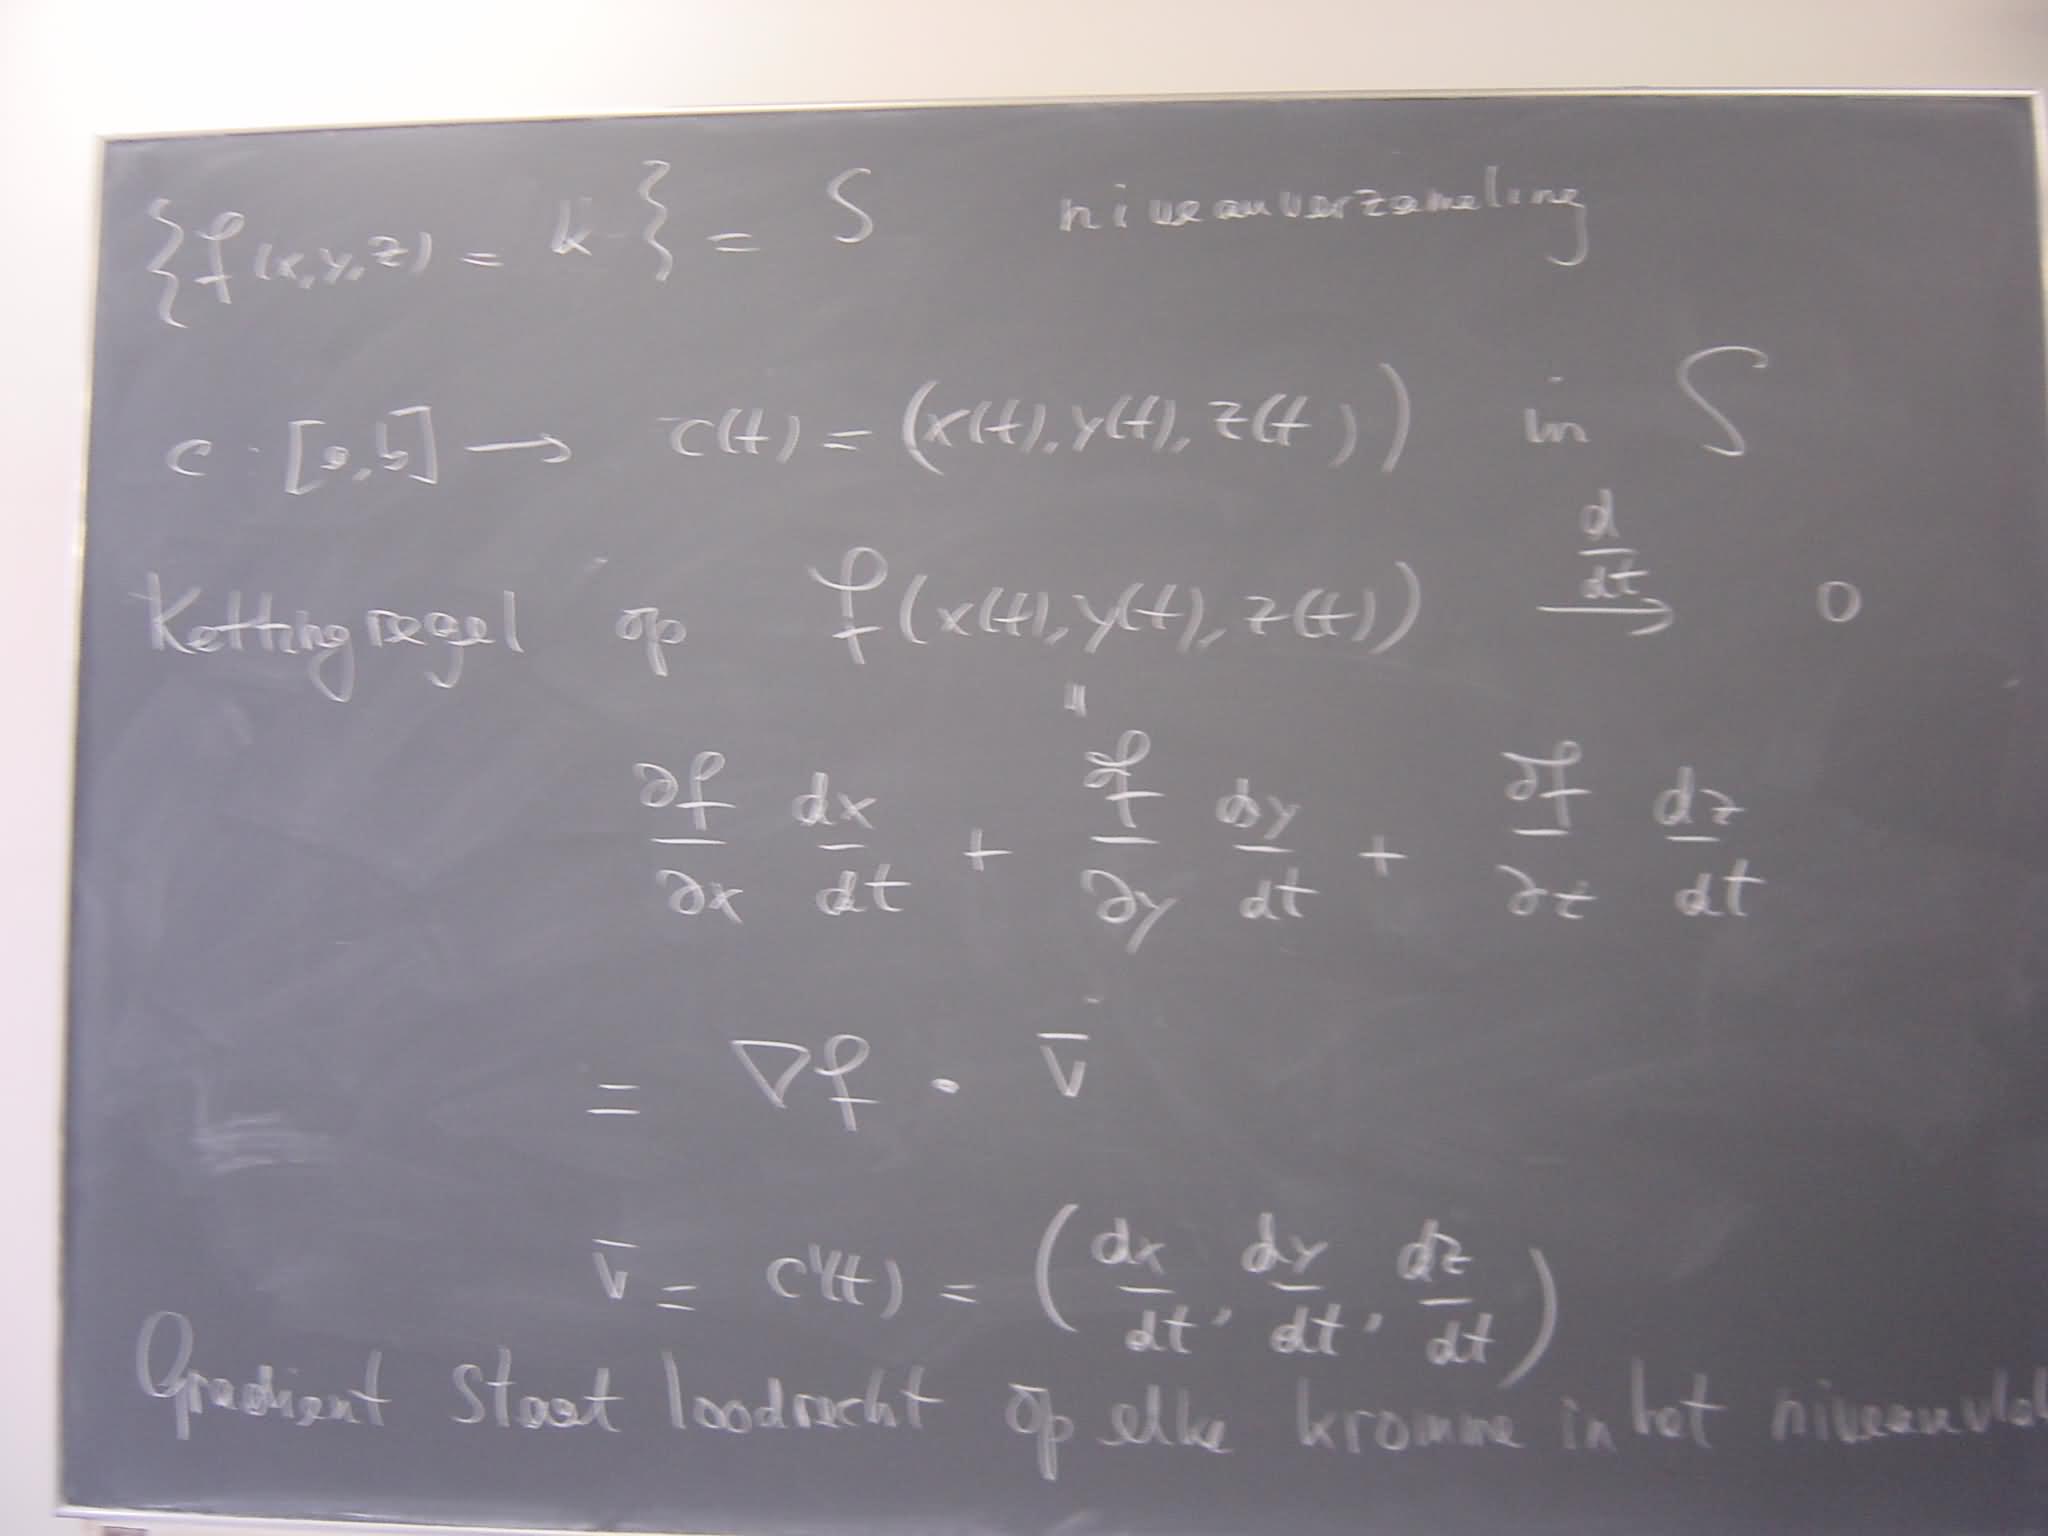 {f(x,y,z) = k} = S niveauverzameling
c : [a,b] → c̄(t) = (x(t), y(t), z(t)) in S
Kettingregel op f(x(t), y(t), z(t)) d/dt → 0
"
∂f/∂x dx/dt + ∂f/∂y dy/dt + ∂f/∂z dz/dt
= ∇f • v̄
v̄ = c'(t) = (dx/dt, dy/dt, dz/dt)
Gradient staat loodrecht op elke kromme in het niveauvla